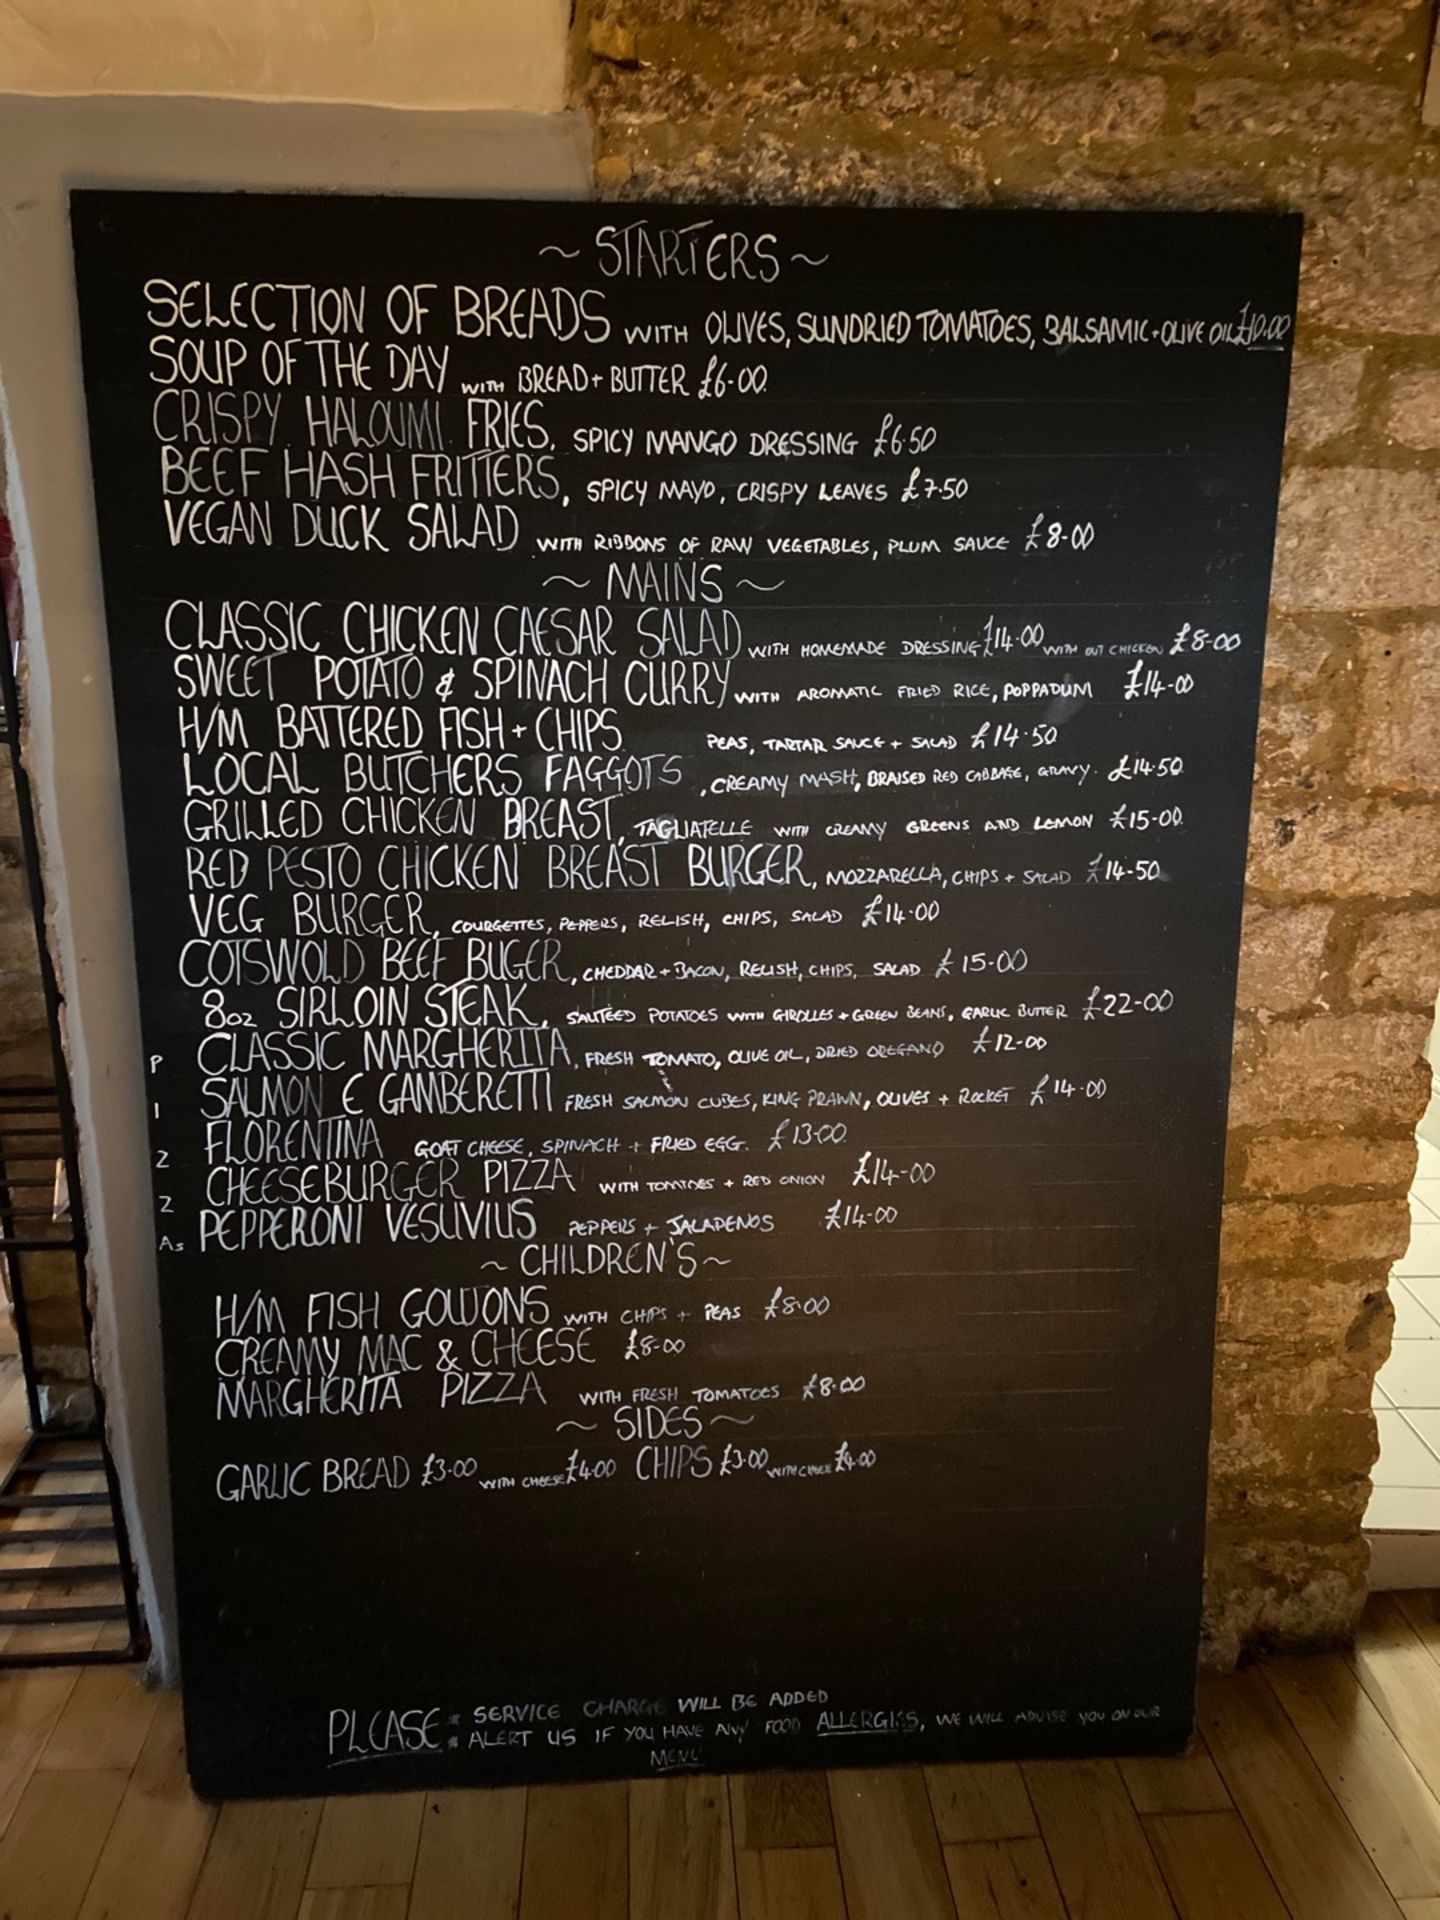 ~ STARTERS ~
SELECTION OF BREADS WITH OLIVES, SUNDRIED TOMATOES, BALSAMIC + OLIVE OIL £10.00
SOUP OF THE DAY WITH BREAD + BUTTER £6.00
CRISPY HALOUMI FRIES, SPICY MANGO DRESSING £6.50
BEEF HASH FRITTERS, SPICY MAYO, CRISPY LEAVES £7.50
VEGAN DUCK SALAD WITH RIBBONS OF RAW VEGETABLES, PLUM SAUCE £8-00
~ MAINS ~
CLASSIC CHICKEN CAESAR SALAD WITH HOMEMADE DRESSING £14.00 WITH OUT CHICKEN £8-00
SWEET POTATO & SPINACH CURRY WITH AROMATIC FRIED RICE, POPPADUM £14-00
H/M BATTERED FISH + CHIPS PEAS, TARTAR SAUCE + SALAD £14.50
LOCAL BUTCHERS FAGGOTS, CREAMY MASH, BRAISED RED CABBAGE, GRAVY. £14.50
GRILLED CHICKEN BREAST, TAGLIATELLE WITH CREAMY GREENS AND LEMON £15-00
RED PESTO CHICKEN BREAST BURGER, MOZZARELLA, CHIPS + SALAD £14-50
VEG BURGER, COURGETTES, PEPPERS, RELISH, CHIPS, SALAD £14.00
COTSWOLD BEEF BUGER, CHEDDAR + BACON, RELISH, CHIPS, SALAD £15-00
8oz SIRLOIN STEAK, SAUTEED POTATOES WITH GIROLLES + GREEN BEANS, GARLIC BUTTER £22-00
P CLASSIC MARGHERITA, FRESH TOMATO, OLIVE OIL, DRIED OREGANO £12-00
I SALMON E GAMBERETTI FRESH SALMON CUBES, KING PRAWN, OLIVES + ROCKET £14.00
Z FLORENTINA GOAT CHEESE, SPINACH + FRIED EGG. £13.00
Z CHEESEBURGER PIZZA WITH TOMTOES + RED ONION £14-00
As PEPPERONI VESUVIUS PEPPERS + JALAPENOS £14-00
~ CHILDREN'S ~
H/M FISH GOUJONS WITH CHIPS + PEAS £8.00
CREAMY MAC & CHEESE £8-00
MARGHERITA PIZZA WITH FRESH TOMATOES £8.00
~ SIDES ~
GARLIC BREAD £3.00 WITH CHEESE £4.00 CHIPS £3.00 WITH CHEESE £4.00
PLEASE: SERVICE CHARGE WILL BE ADDED
: ALERT US IF YOU HAVE ANY FOOD ALLERGIES, WE WILL ADVISE YOU ON OUR
MENU